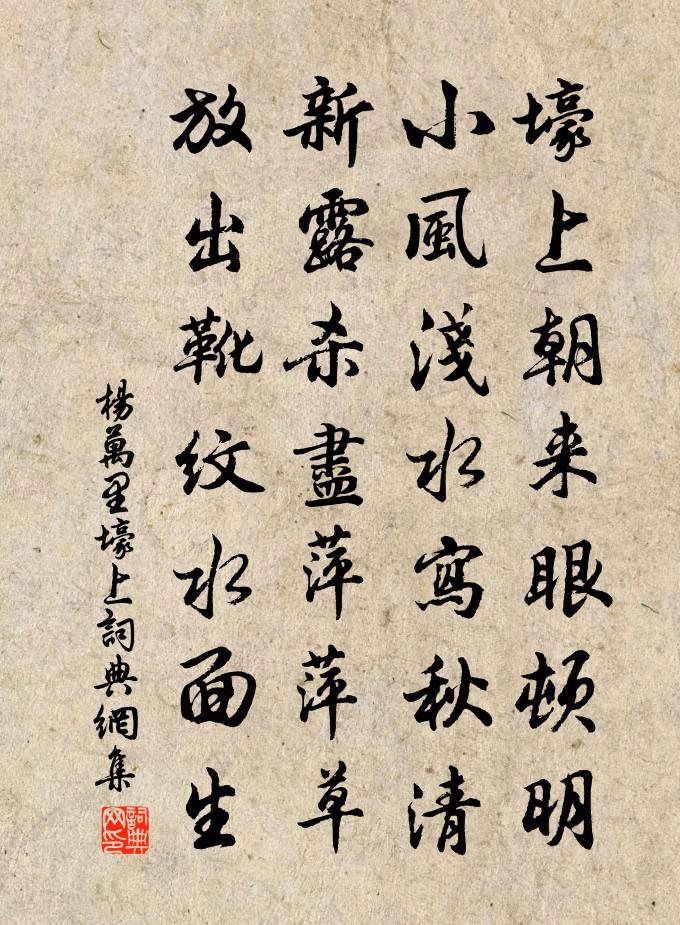 壕上朝来眼頓明
小風淺水寫秋清
新露杀盡萍萍草
放出靴紋水面生
楊萬里壕上詞典網集
詞典網印